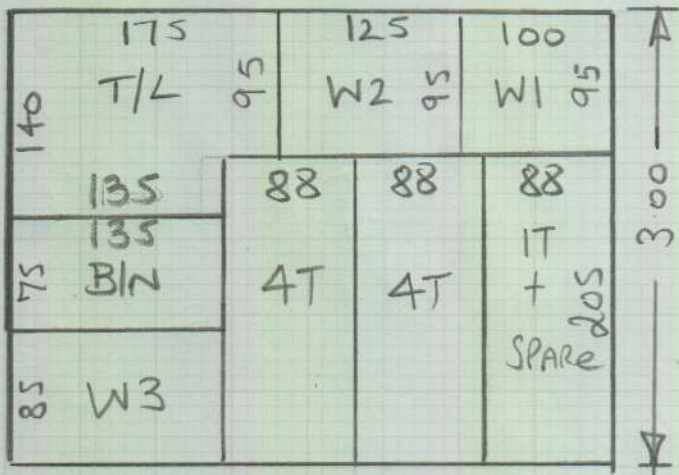 175
T/L
95
140
135
125
W2
95
100
W1
95
3.00
135
B/N
75
85
W3
88
4T
88
4T
88
1T
+
SPARe
205